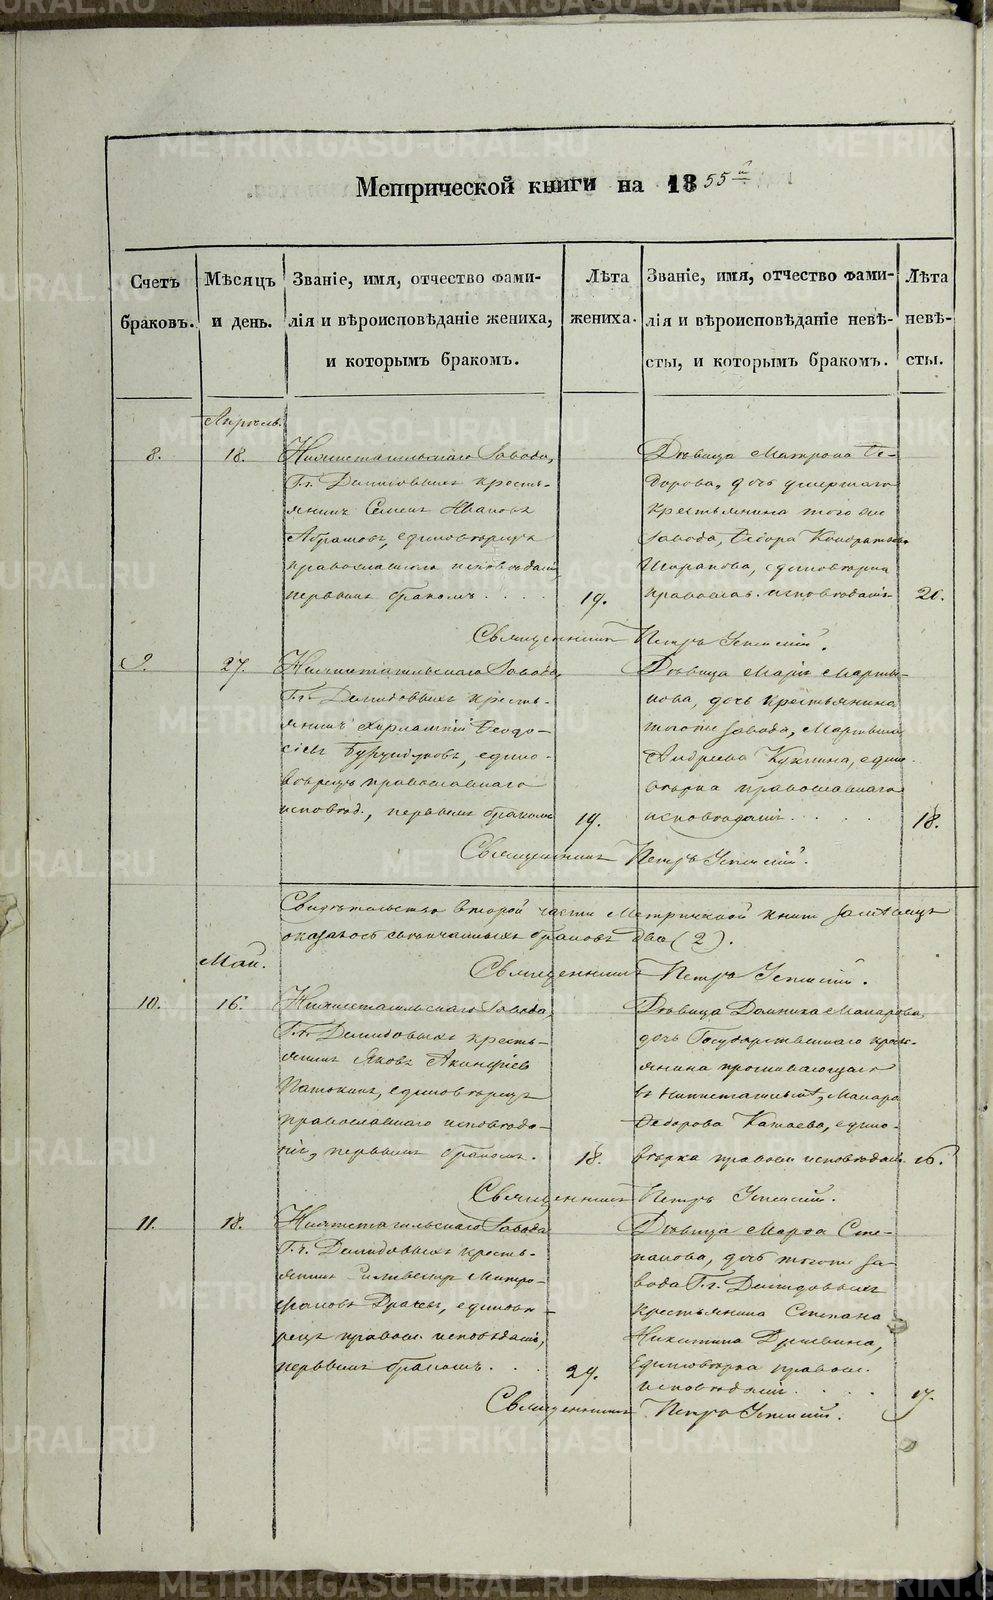 Метрической книги на 1855й
Счетъ браковъ.
Мѣсяцъ и день.
Званіе, имя, отчество фами-
лія и вѣроисповѣданіе жениха,
и которымъ бракомъ.
Лѣта
жениха.
Званіе, имя, отчество фами-
лія и вѣроисповѣданіе невѣ-
сты, и которымъ бракомъ.
Лѣта
невѣ-
сты.
Апрѣль.
8.
18.
Нижнетагильскаго Завода,
Г.г. Демидовыхъ кресть-
янинъ Семенъ Ивановъ
Абрамовъ, единовѣрецъ
православнаго исповѣданія,
первымъ бракомъ. . . .
19.
Дѣвица Матрона Ѳе-
дорова, дочь умершаго
крестьянина того же
завода, Ѳедора Кондратьева
Шарапова, единовѣрка
православ. исповѣданія
20.
Священникъ Петръ Успенскій.
9.
27.
Нижнетагильскаго Завода,
Г.г. Демидовыхъ кресть-
янинъ Харлампій Ѳеодо-
сіевъ Бурундуковъ, едино-
вѣрецъ православнаго
исповѣд., первымъ бракомъ
19.
Дѣвица Марія Марты-
нова, дочь крестьянина
тогоже завода, Мартына
Андреева Кукина, едино-
вѣрка православнаго
исповѣданія. . . .
18.
Священникъ Петръ Успенскій.
Свидѣтельство второй части Метрической книги за мѣсяцъ
оказалось бракосочетавшихся браковъ два (2).
Священникъ Петръ Успенскій.
Май.
10.
16.
Нижнетагильскаго Завода,
Г.г. Демидовыхъ кресть-
янинъ Яковъ Акинфіевъ
Патокинъ, единовѣрецъ
православнаго исповѣда-
нія, первымъ бракомъ.
18.
Дѣвица Домника Макарова,
дочь Государственнаго крест-
янина проживающаго
въ Нижнетагильск., Макара
Ѳедорова Катаева, едино-
вѣрка правосл. исповѣдан.
16.
Священникъ Петръ Успенскій.
11.
18.
Нижнетагильскаго Завода
Г.г. Демидовыхъ кресть-
янинъ Сильвестръ Митро-
фановъ Драчевъ, единовѣ-
рецъ правосл. исповѣданія,
первымъ бракомъ. . .
29.
Дѣвица Марѳа Сте-
панова, дочь тогоже за-
вода Г.г. Демидовыхъ
крестьянина Степана
Никитина Дрягина,
Единовѣрка правосл.
исповѣданія. . . .
17.
Священникъ Петръ Успенскій.
METRIKI.GASO-URAL.RU